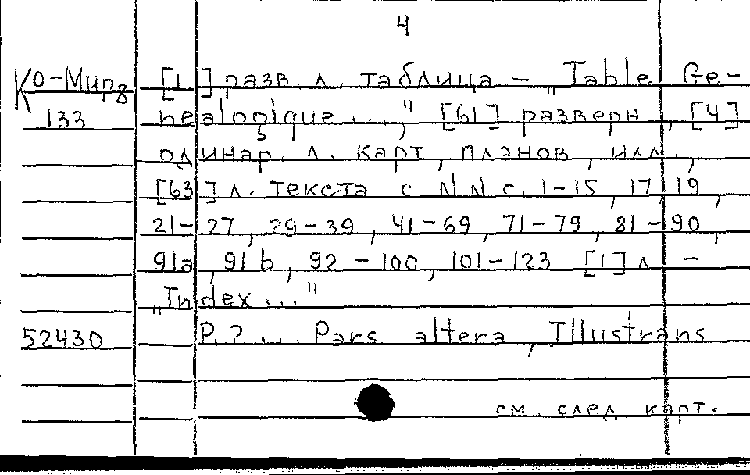 4
Ко-Мирз [1] разв. л. таблица – „Table Ge-
133 nealogique ...," [61] разверн., [4]
одинар. л. карт, планов, илл.,
[63] л. текста с NN с. 1-15, 17, 19,
21-27, 29-39, 41-69, 71-79, 81-90,
91a, 91b, 92-100, 101-123 [1] л. –
„Index ..."
52430 P. 2 ... Pars altera, Illustrans
см. след. карт.